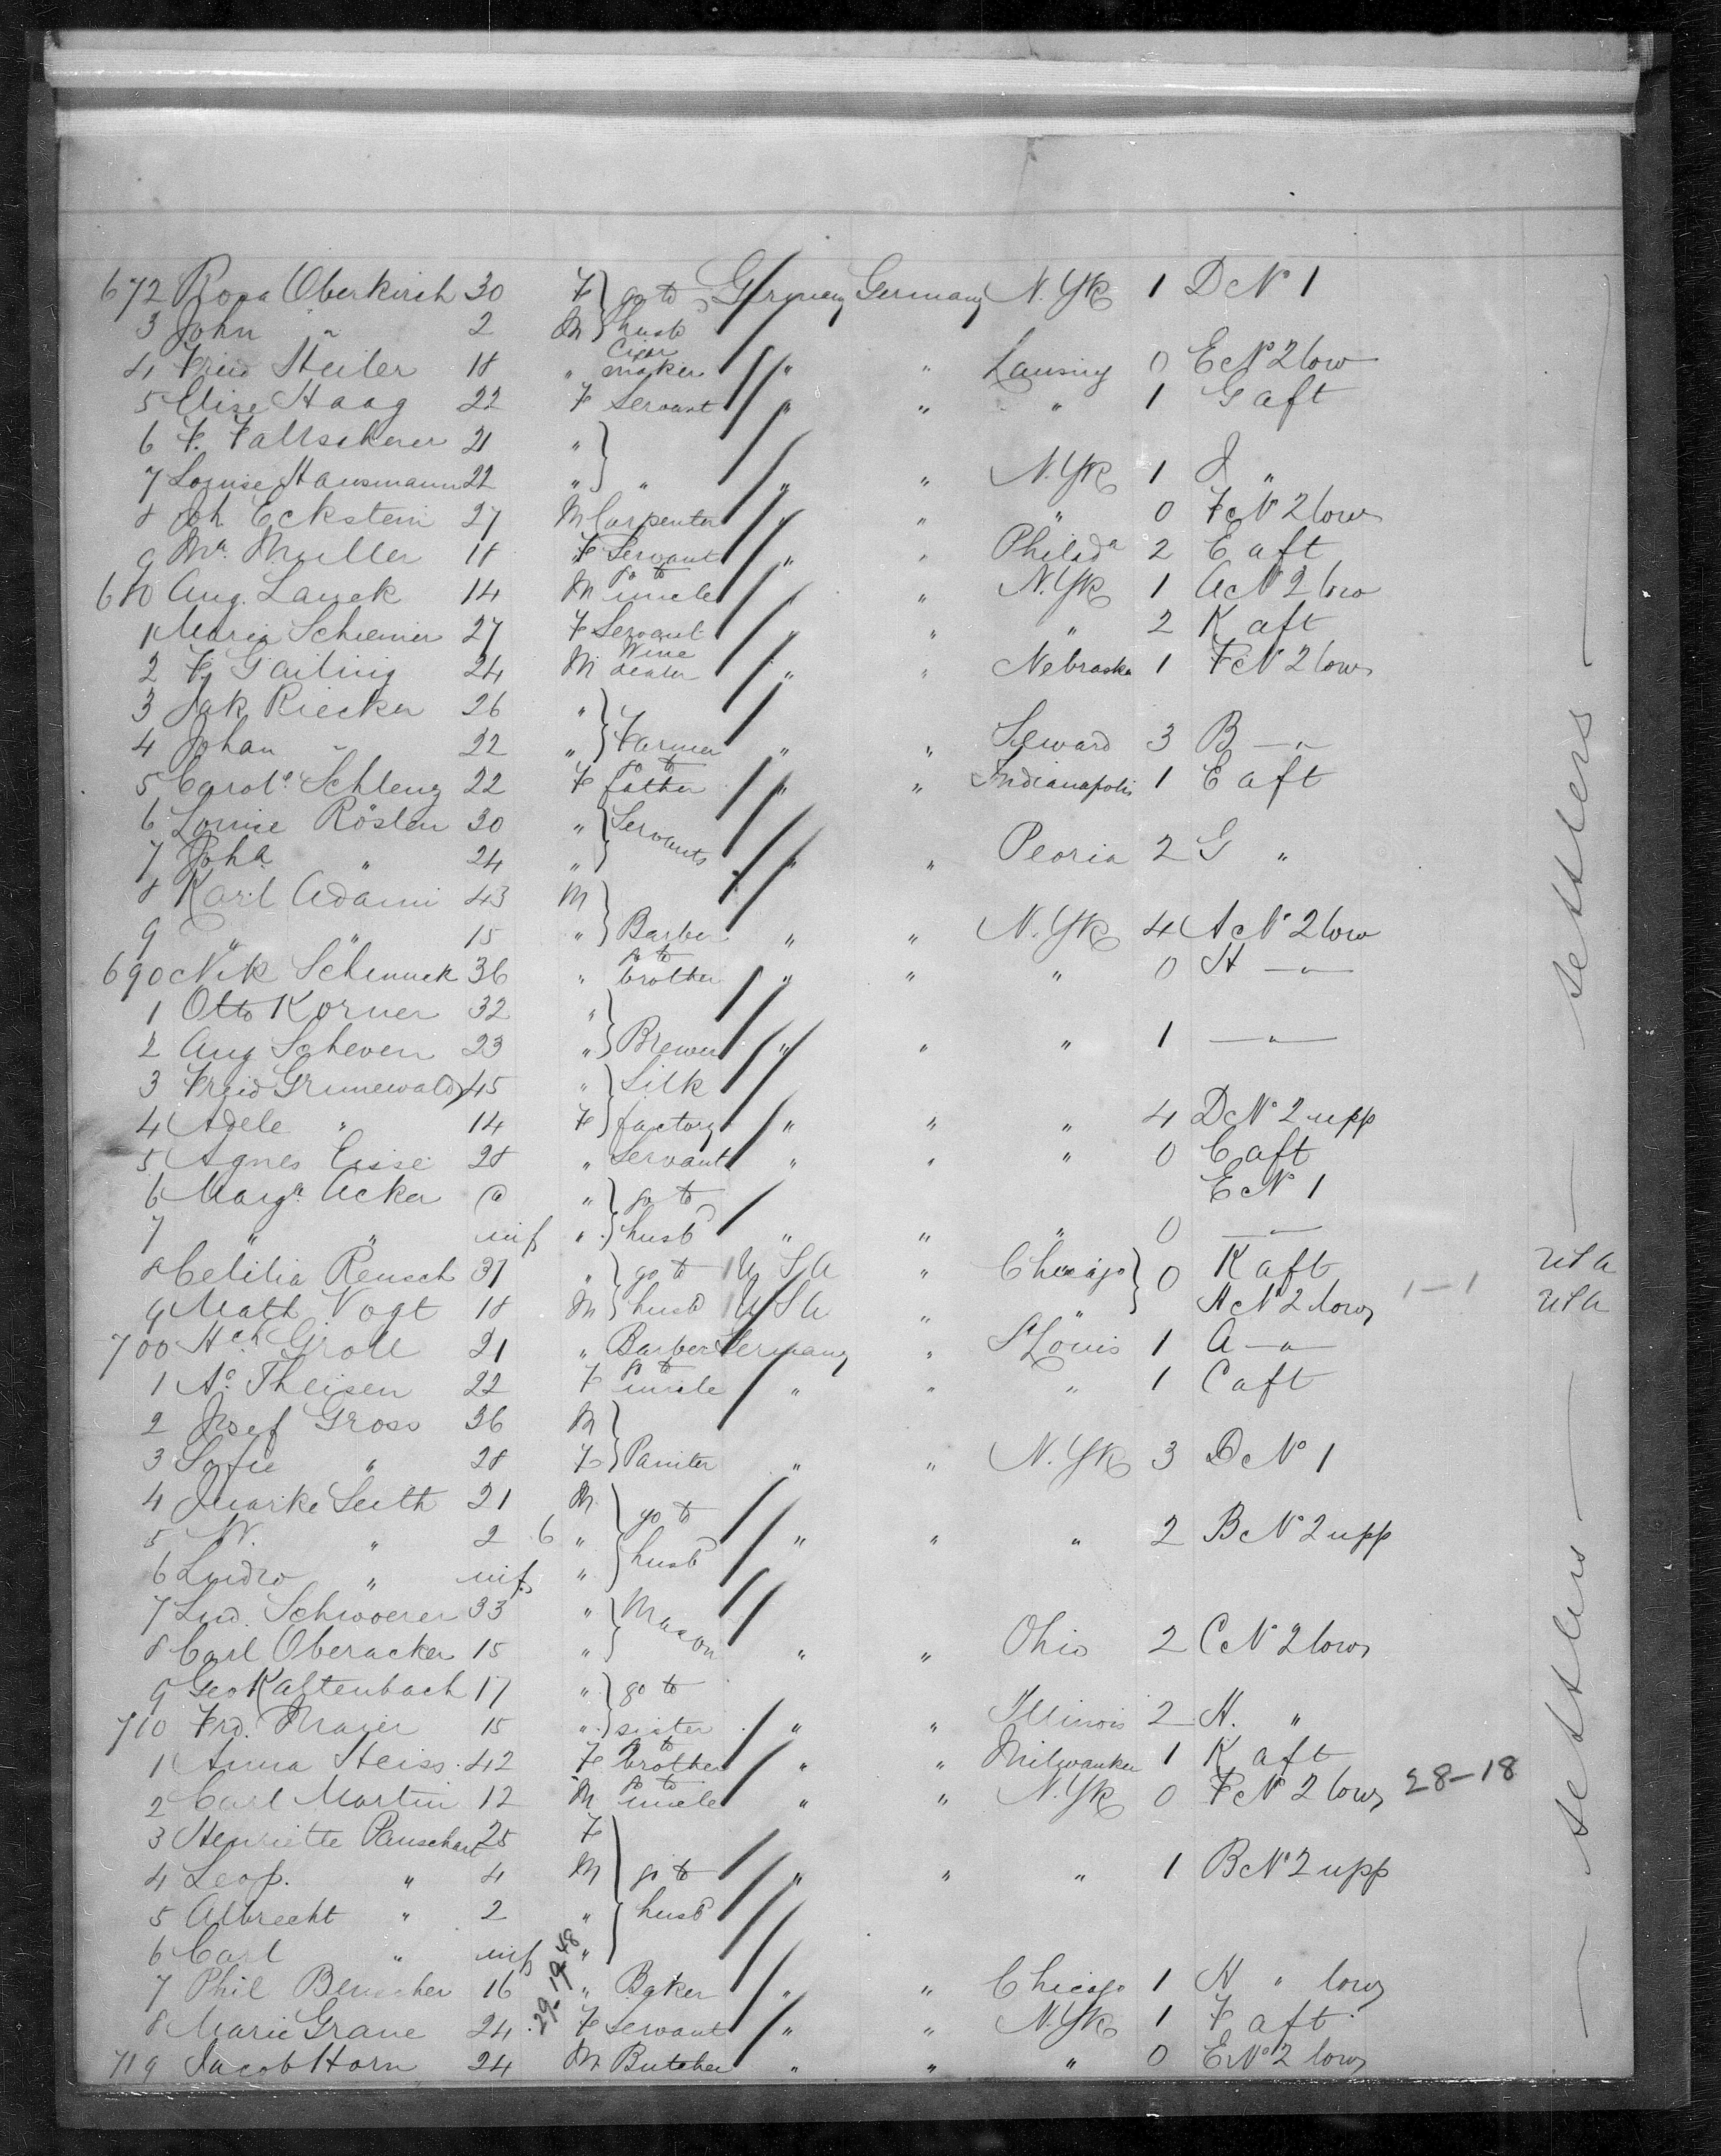 672 Rosa Oberkirch 30 F } go to Germany Germany N. Yk 1 D No 1
3 John " 2 M } husb
4 Fried Steiler 18 " Cigar maker " " Lansing 0 E No 2 low
5 Elise Haag 22 F Servant " " " 1 G aft
6 F. Faltscherer 21 " }
7 Louise Hausmann 22 " } " " " N. Yk 1 J "
8 Joh Eckstein 27 M Carpenter " " " 0 F No 2 low
9 Ma. Muller 18 F Servant " " Philada 2 E aft
680 Aug. Lauck 14 M go to uncle " " N. Yk 1 A No 2 low
1 Maria Schremer 27 F Servant " " " 2 K aft
2 F. Gailing 24 M Wine dealer " " Nebraska 1 F No 2 low
3 Jak Riecker 26 " }
4 Johan " 22 " } Farmer " " Seward 3 B — " —
5 Carola. Schleng 22 F go to father " " Indianapolis 1 E aft
6 Louise Rösten 30 " } Servants
7 Joha. " 24 " } " " Peoria 2 G "
8 Karl Adami 43 M }
9 " " 15 " } Barber " " N. Yk 4 A No 2 low
690 Nik Schmuck 36 " go to brother " " " 0 H — " —
1 Otto Korner 32 " }
2 Aug Scheven 23 " } Brewer " " " 1 — " —
3 Fried Grunewald 45 " } Silk
4 Adele " 14 F } factory " " " 4 D No 2 upp
5 Agnes Eisse 28 " Servant " " " 0 C aft
6 Marga. Acker " } go to E No 1
7 " " inf " } husb " " " 0 — " —
8 Celilia Rensch 31 " } go to U S A " Chicago } 0 K aft U S A
9 Math Vogt 18 M } husb U S A " " } H No 2 low 1—1 U S A
700 Hch Groll 21 " Barber Germany " St Louis 1 A — " —
1 Ae. Theisen 22 F go to uncle " " " 1 C aft
2 Josef Gross 36 M }
3 Sofie " 28 F } Painter " " N. Yk 3 D No 1
4 Leith 21 M } go to
5 W. " 2 6 " } husb " " " 2 B No 2 upp
6 " inf " }
7 Lud. Schwoerer 33 " } Mason
8 Carl Oberacker 15 " } " " Ohio 2 C No 2 low
9 Geo Kaltenbach 17 " } go to
710 Frd. Mayer 15 " } sister " " Illinois 2 H. "
1 Anna Heiss 42 F go to brother " " Milwaukee 1 K aft
2 Carl Martin 12 M go to uncle " " N. Yk 0 F No 2 low 28—18
3 Henriette Panschart 25 F }
4 Leop. " 4 M } go to " " " 1 B No 2 upp
5 Albrecht " 2 " } husb
6 Carl " inf " }
7 Phil 16 " Baker " " Chicago 1 H " low
8 Marie Grane 24 F Servant " " N. Yk 1 F aft
719 Jacob Horn 24 M Butcher " " " 0 E No 2 low
— settlers — settlers —